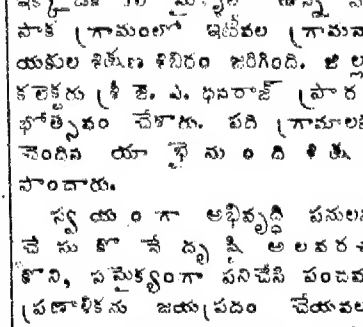 సాక గ్రామంలో ఇటీవల గ్రామనా
యకుల శిక్షణ శిబిరం జరిగింది. జిల్లా
కలెక్టరు శ్రీ జె. ఎ. ధనరాజ్ ప్రార
భోత్సవం చేశారు. పది గ్రామాల
చెందిన యాభై మంది శిక్షణ
పొందారు.
స్వయంగా అభివృద్ధి పనుల
చేసుకొనే దృష్టి అలవరచ
కొని, సమైక్యంగా పనిచేసి పంచవ
ప్రణాళికను జయప్రదం చేయవల